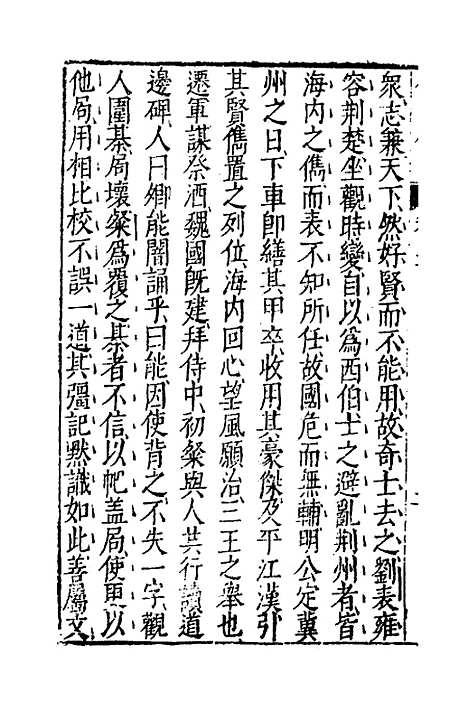 衆志兼天下然好賢而不能用故奇士去之劉表雍
容荆楚坐觀時變自以爲西伯士之避亂荆州者皆
海内之儁而表不知所任故國危而無輔明公定冀
州之日下車卽繕其甲卒收用其豪傑及平江漢引
其賢儁置之列位海内回心望風願治三王之舉也
遷軍謀祭酒魏國旣建拜侍中初粲與人共行讀道
邊碑人曰卿能闇誦乎曰能因使背之不失一字觀
人圍棊局壞粲爲覆之棊者不信以帊盖局使更以
他局用相比校不誤一道其彊記黙識如此善屬文